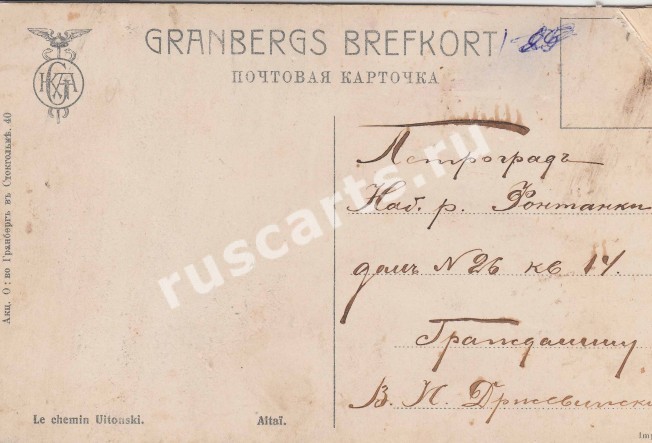 GRANBERGS BREFKORT
ПОЧТОВАЯ КАРТОЧКА
Акц. О: во Гранбергъ въ Стокгольмѣ. 40
Петроградъ
Наб. р. Фонтанки
домъ N 26 кв 14.
Гражданину
В. И.
Le chemin Uitonski. Altaï.
Imp
ruscarts.ru